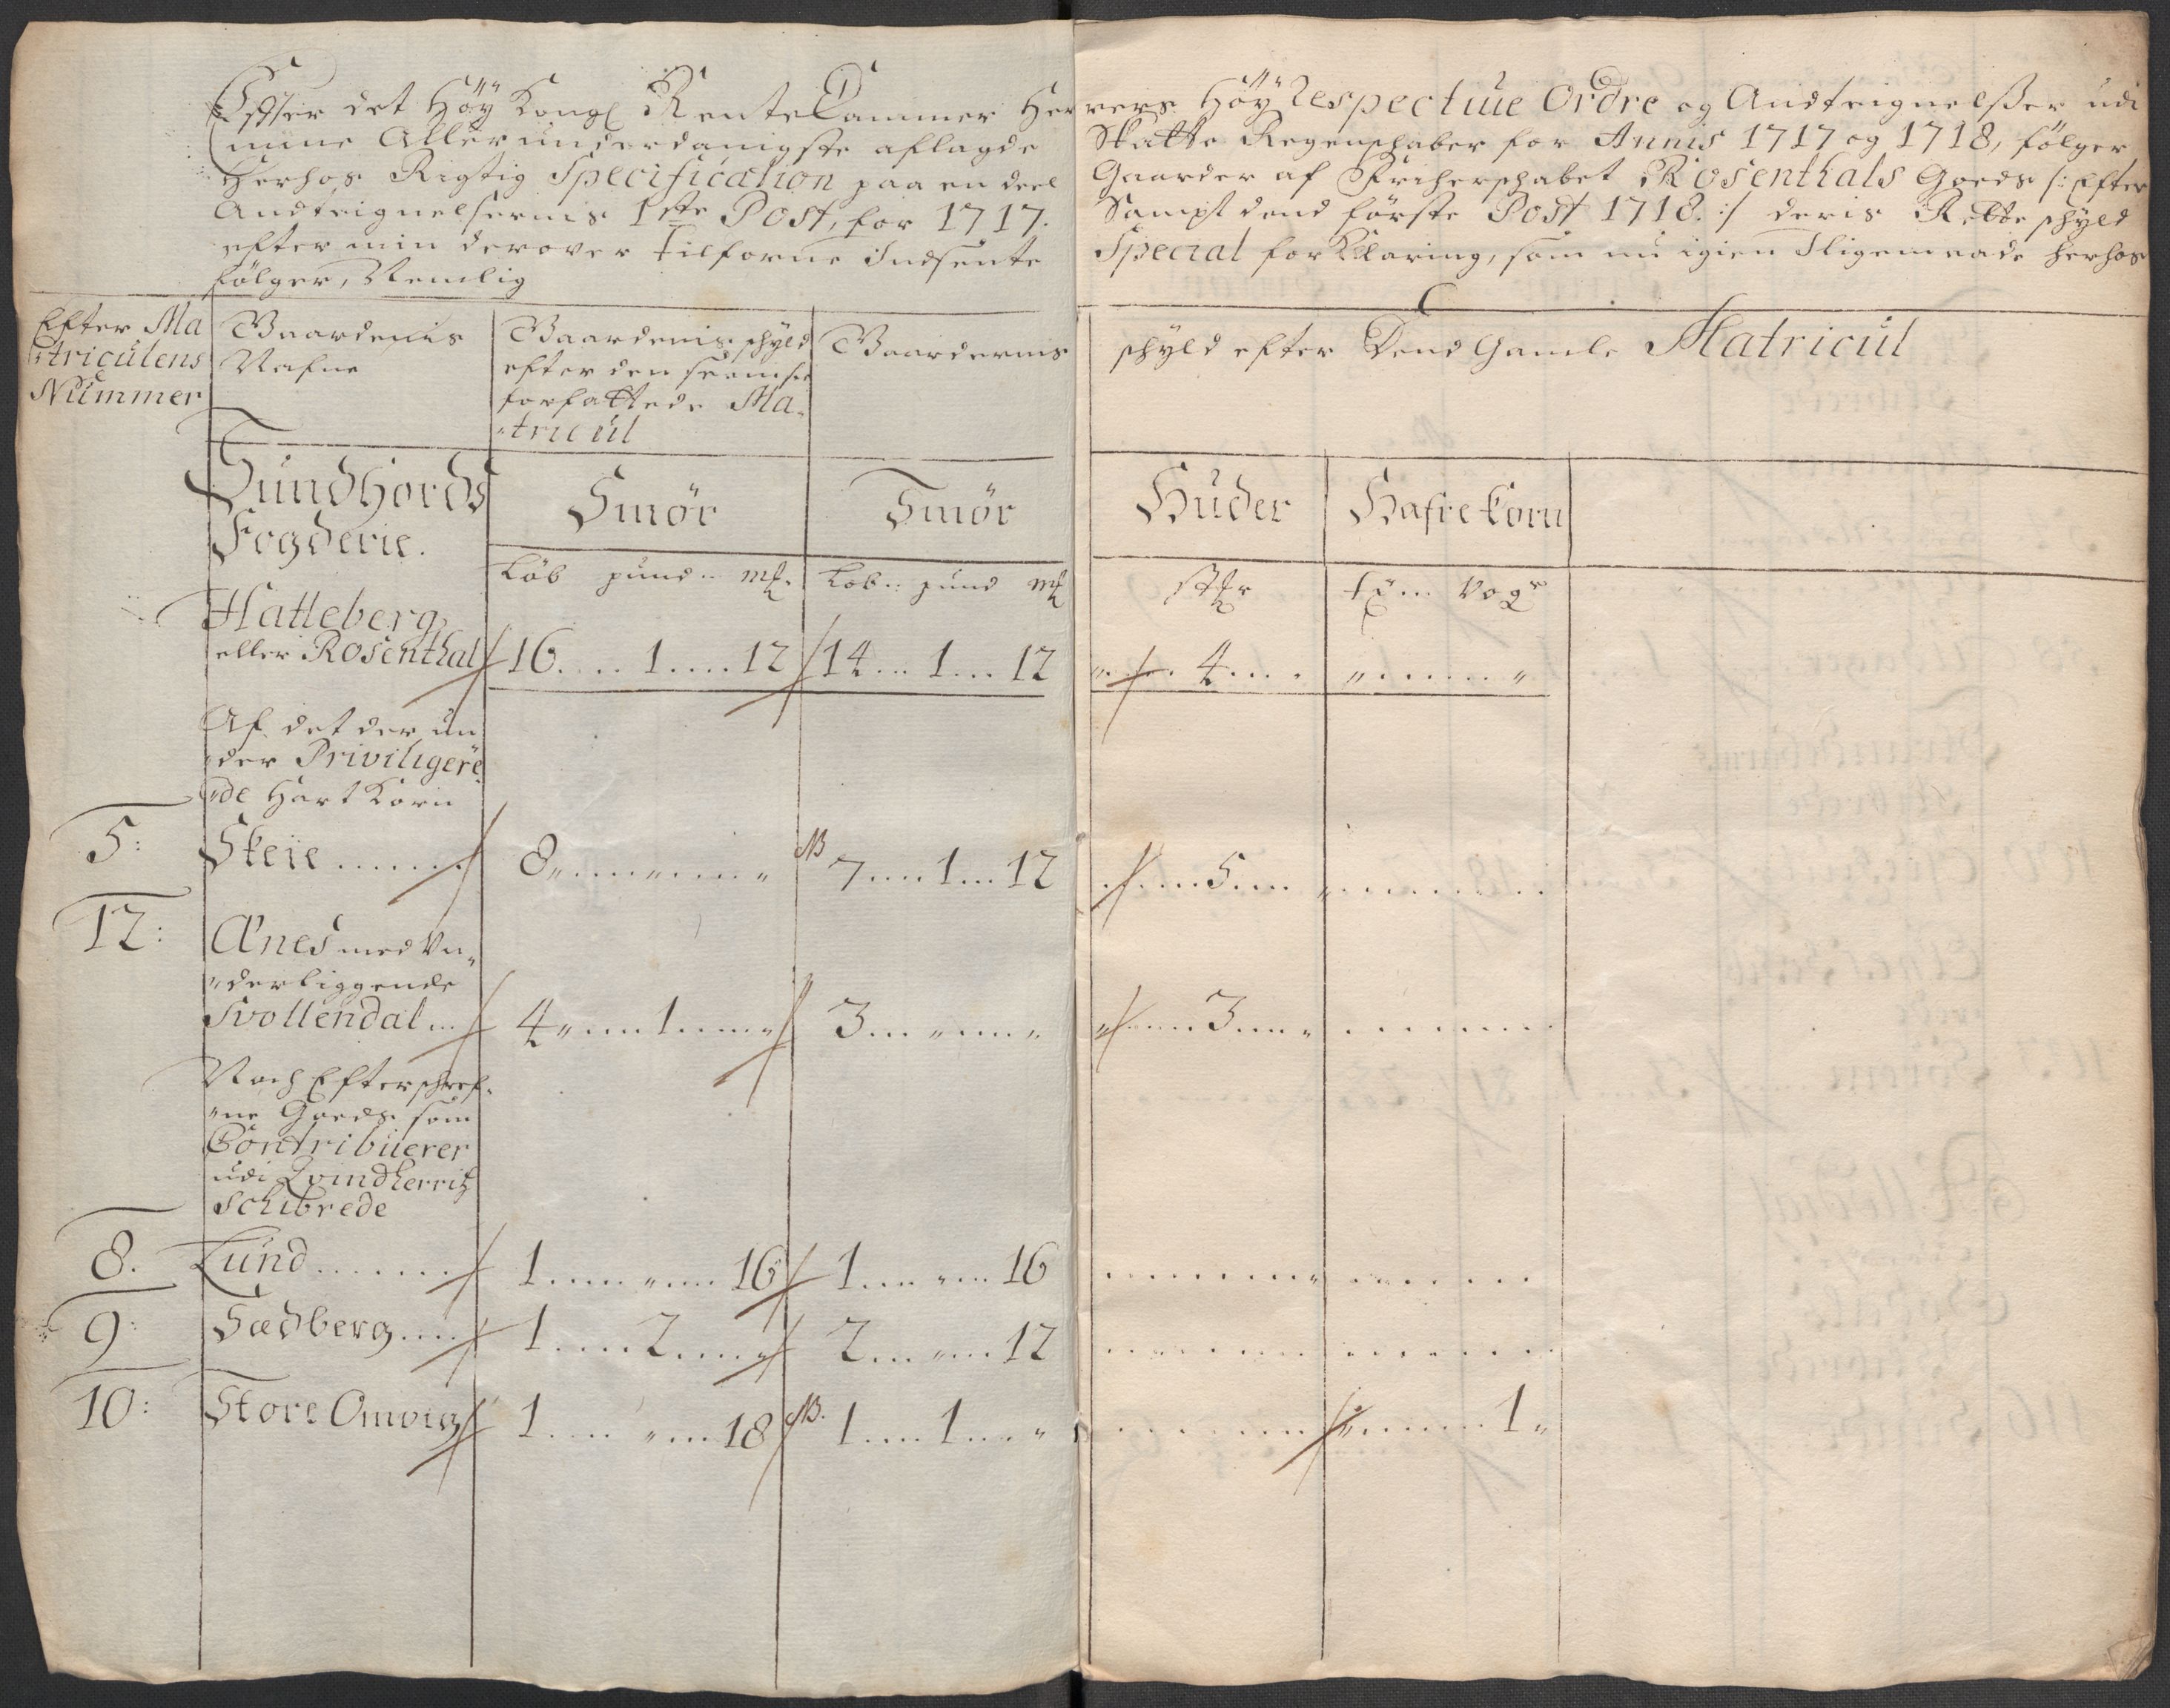 Efter det Höy Kongl RenteCammer Herrers Höy Respective Ordre og Andteignelßer udi
mine Allerunderdanigste aflagde Skatte Regenschaber for Annis 1717 og 1718, følger
Herhos Rigtig Specification paa en deel Gaarder af Friherschabet Rosenthals Goeds /: Efter
Andteignelsernis 1ste Post, for 1717. Sampt dend første Post 1718. :/ deris Rette schyld
efter min derover tilforne Indsente Special forKlaring, som nu igien Sligemaade herhos
følger, Nemlig
Efter Ma
triculens
Nummer
Gaardenis
Nafne
Gaardenis schyld
efter den
forfattede Ma-
tricul
Gaardernis schyld efter Dend Gamle Matricul
Sundhords
Fogderie.
Smör
Smör
Huder
Hafrekorn
Löb pund mk.
Løb pund mk
Hatteberg
eller Rosenthal 16 1 12 14 1 12 4
Af det der un
der Priviligere
de Hart Korn
5: Skeie 8 NB 7 1 12 5
12: Ænes med Un-
derliggende
Svollendal 4 1 3 3
Noch Efterschref-
ne Goeds som
Contribuerer
udi Qvindherritz
Schibrede
8. Lund 1 16 1 16
9: Sædberg 1 2 2 12
10: Store Omvig 1 18 NB. 1 1 1